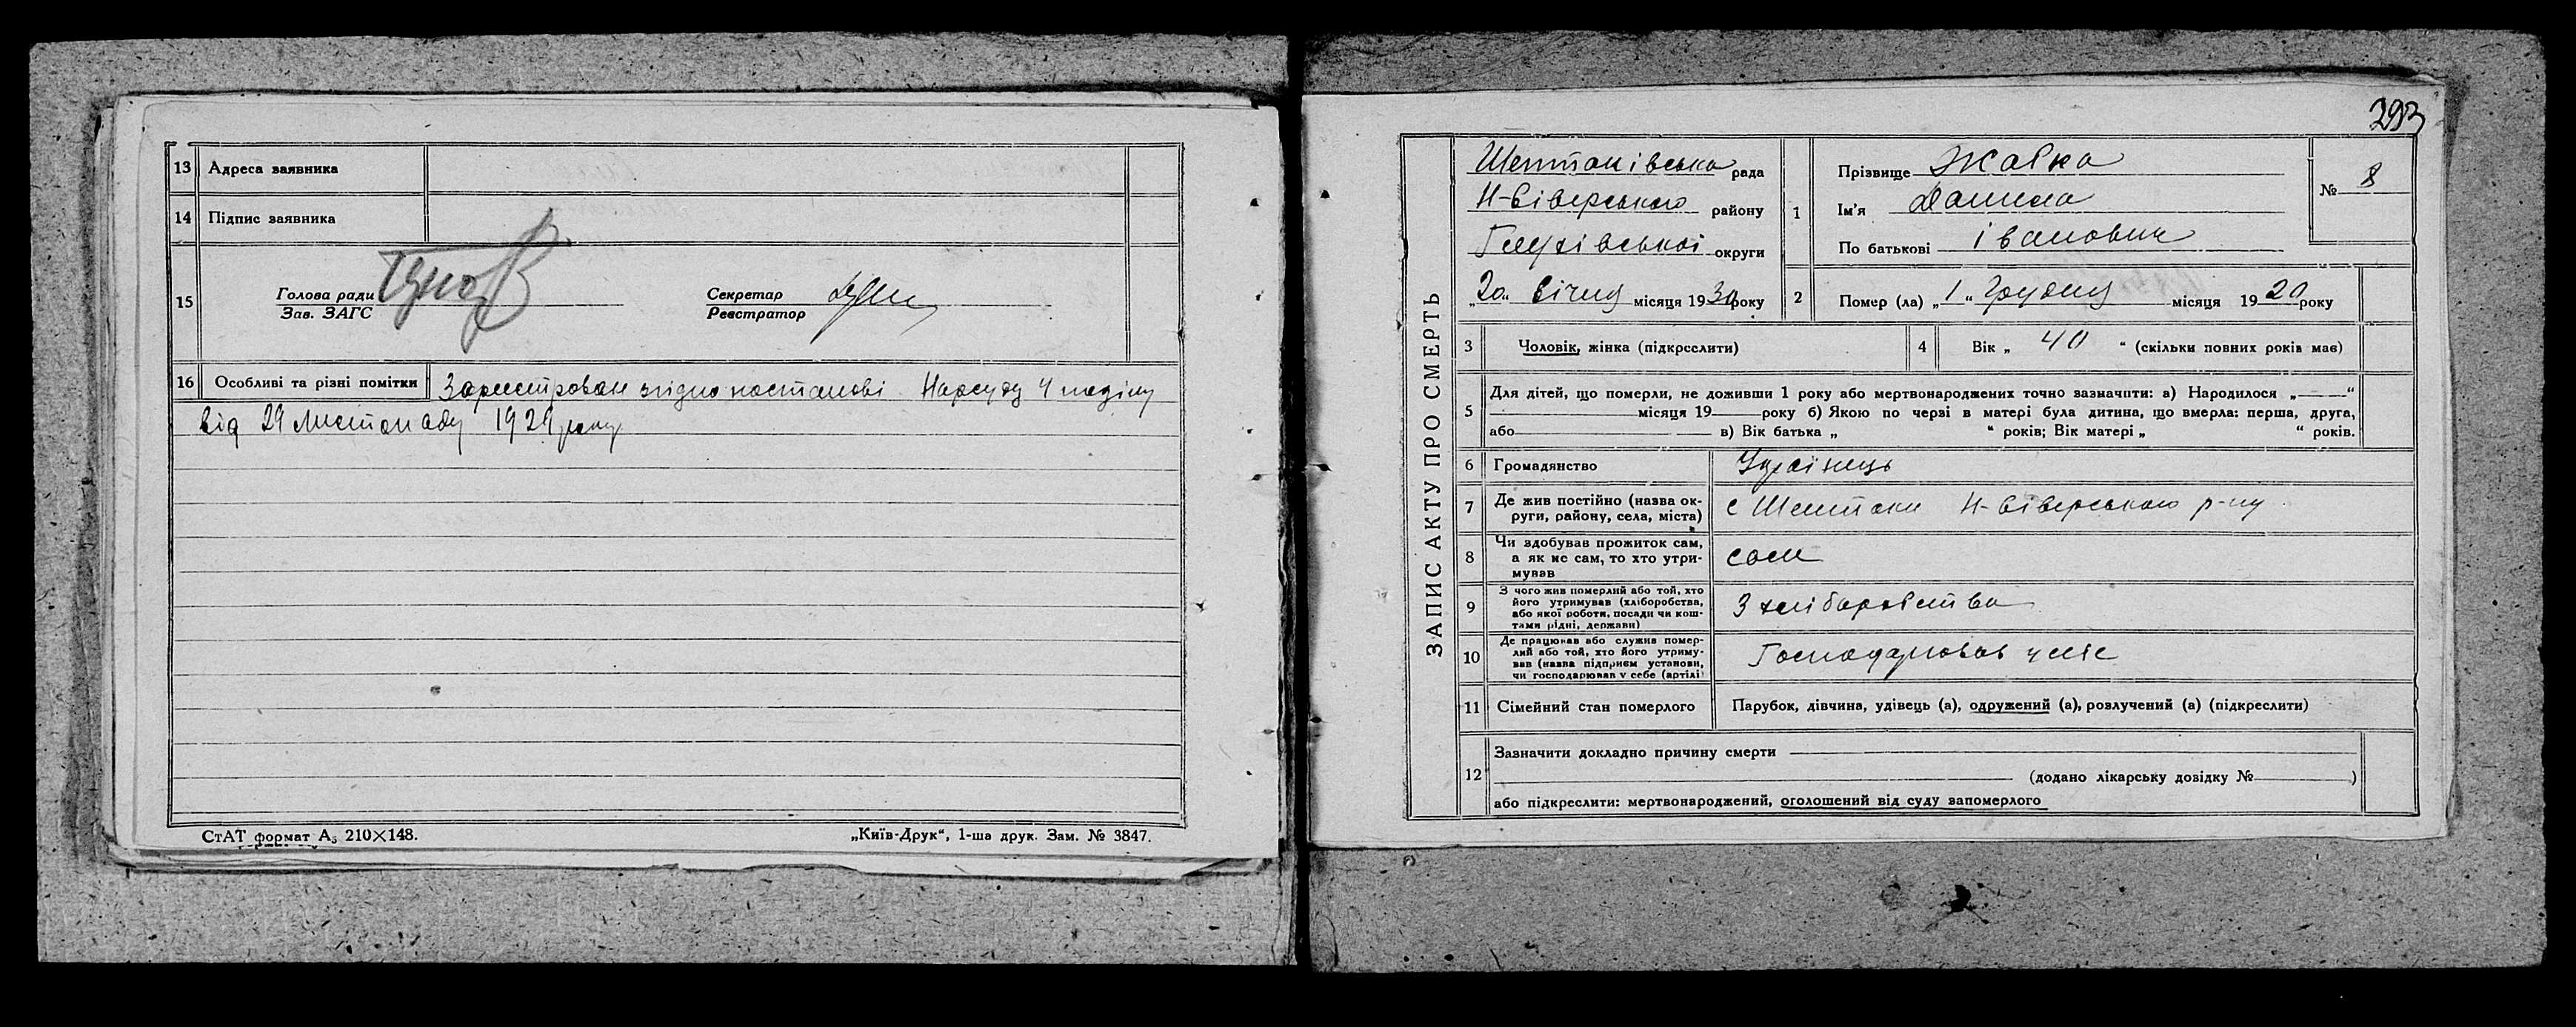 13 Адреса заявника
14 Підпис заявника
15 Голова ради
Зав. ЗАГС
Секретар
Реєстратор
16 Особливі та різні помітки Зареєстрован згідно постанові Нарсуду 4 поділу
від 29 Листопаду 1929 року
СтАТ формат А₅ 210×148.
„Київ-Друк“, 1-ша друк. Зам. № 3847.
293
ЗАПИС АКТУ ПРО СМЕРТЬ
Шептаківська рада
Н-Сіверського району
Глухівської округи
„20„ Січня місяця 1930 року
1 Прізвище Жавка
Ім'я Данила
По батькові Іванович
№ 8
2 Помер (ла) „1“ Грудня місяця 1920 року
3 Чоловік, жінка (підкреслити)
4 Вік „ 40 “ (скільки повних років має)
5 Для дітей, що померли, не доживши 1 року або мертвонароджених точно зазначити: а) Народилося „—“
місяця 19 року б) Якою по черзі в матері була дитина, що вмерла: перша, друга,
або в) Вік батька „ “ років; Вік матері „ “ років.
6 Громадянство Українець
7 Де жив постійно (назва ок-
руги, району, села, міста) с Шептаки Н-Сіверського р-ну
8 Чи здобував прожиток сам,
а як не сам, то хто утри-
мував сам
9 З чого жив померлий або той, хто
його утримував (хліборобства,
або якої роботи, посади чи кош-
тами рідні, держави) З хліборобства
10 Де працював або служив помер-
лий або той, хто його утриму-
вав (назва підприєм установи,
чи господарював у себе (артілі) Господарював у себе
11 Сімейний стан померлого Парубок, дівчина, удівець (а), одружений (а), розлучений (а) (підкреслити)
12 Зазначити докладно причину смерти
(додано лікарську довідку № )
або підкреслити: мертвонароджений, оголошений від суду запомерлого